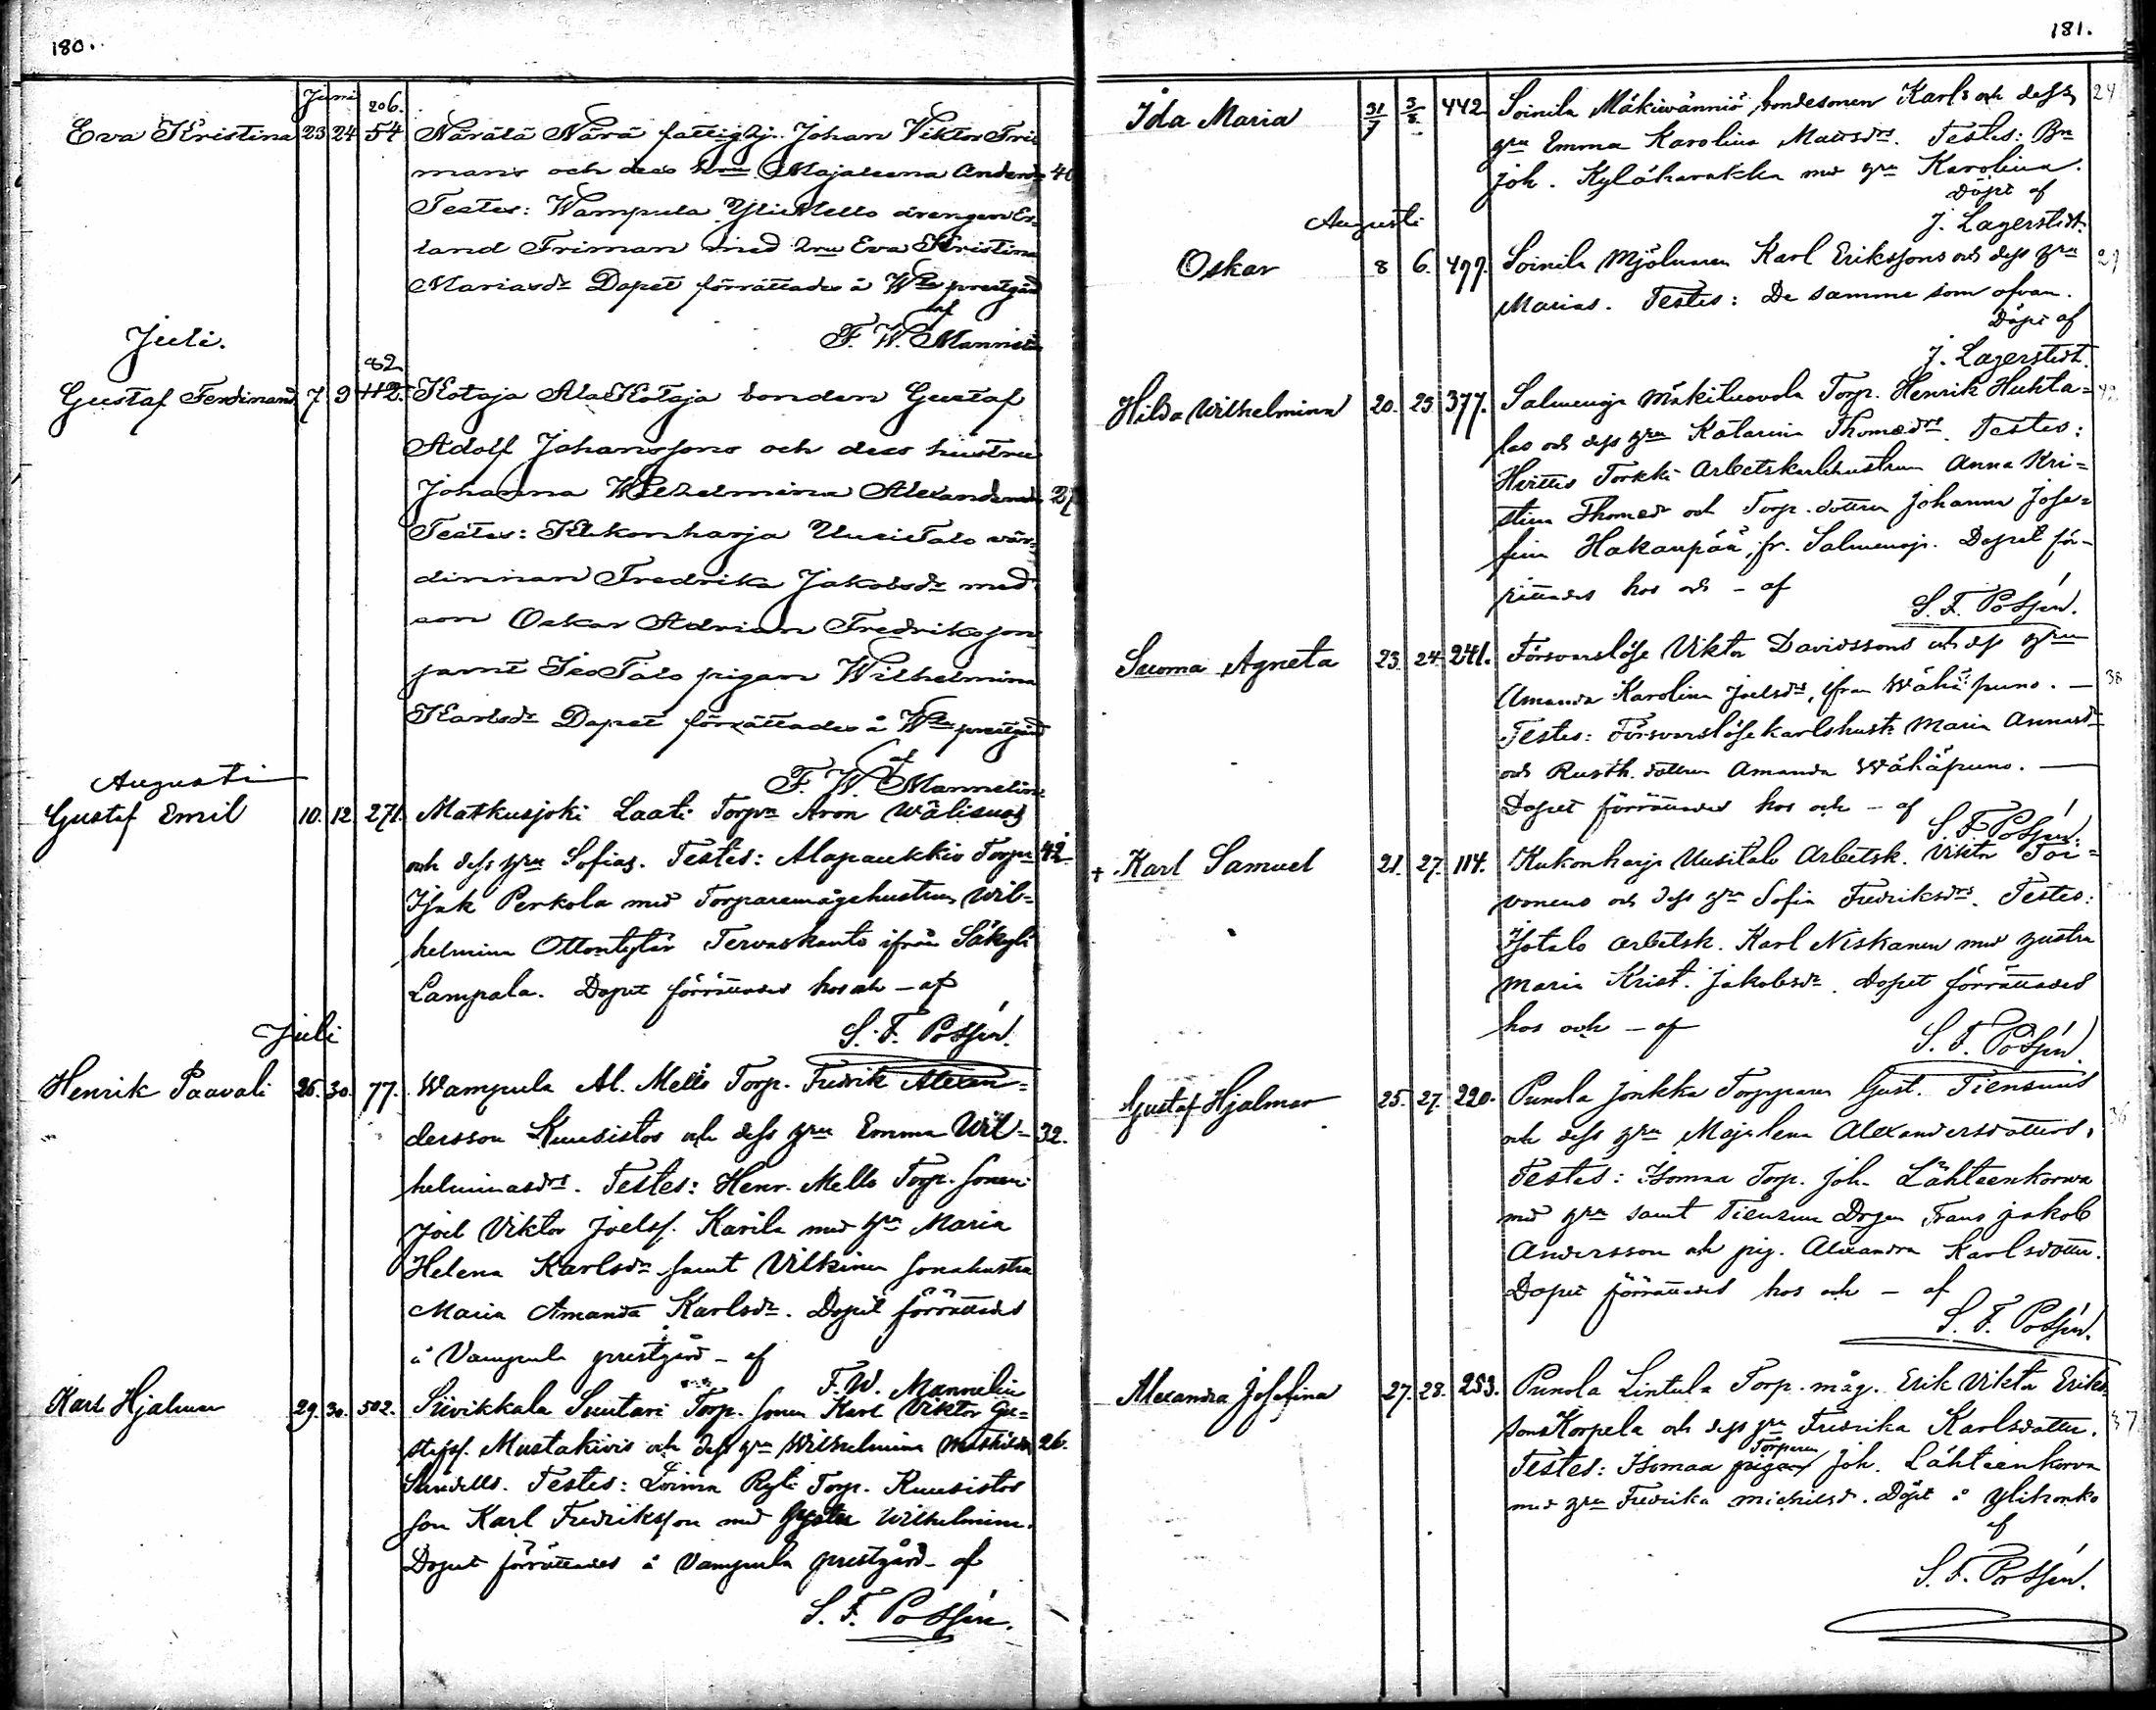 180.
Juni
206.
Eva Kristina 23 24 54 Närälä Närä fattighj. Johan Viktor Fri-
mans och dess hru Majaleena Andersdr 40
Testes: Wampula YliMello drengen Er-
land Friman med hru Eva Kristina
Mariasdr Dopet förrättades å Wla prestgård
af
F. W. Mannelin
Juli.
82
Gustaf Ferdinand 7 9 112. Kotaja AlaKotaja bonden Gustaf
Adolf Johanssons och dess hustru
Johanna Wilhelmina Alexandersdr 27
Testes: Kukonharja UusiTalo vär-
dinnan Fredrika Jakobsdr med
son Oskar Adrian Fredriksson
samt IsoTalo pigan Wilhelmina
Karlsdr Dopet förrättades å Wla prestgård
af
F. W. Mannelin
Augusti
Gustaf Emil 10. 12. 271. Matkusjoki Laati Torpn Aron Wälisuos
och dess hru Sofias. Testes: Alapaukkio Torpn 42.
Isak Perkola med Torparemågshustrun Wil-
helmina Ottontytär Tervaskanto ifrån Säkylä
Lampala. Dopet förrättades hos och - af
S. F. Possén.
Juli
Henrik Paavali 26. 30. 77. Wampula Al. Mello Torp. Fredrik Alexan-
dersson Kuusistos och dess hru Emma Wil- 32.
helminasdrs. Testes: Henr. Mello Torp. sonen
Joel Viktor Joelss. Karila med hru Maria
Helena Karlsdr samt Vilkinen sonahustru
Maria Amanda Karlsdr. Dopet förrättades
å Vampula prestgård - af
F. W. Mannelin
Karl Hjalmar 29. 30. 502. Siivikkala Suutari Torp. sonen Karl Viktor Gu-
stafss. Mustakivis och dess hru Wilhelmina Mathilda 26.
Sandells. Testes: Loima Ryli Torp. Kuusistos
son Karl Fredriksson med hustru Wilhelmina.
Dopet förrättades å Vampula prestgård - af
S. F. Possén.
181.
Ida Maria 31/7 3/8 442 Soinila Mäkiwänniö bondesonen Karls och dess 24
hru Emma Karolina Matsdrs. Testes: Bn
Joh. Kyläharakka med hru Karolina.
Döpt af
J. Lagerstedt.
Augusti
Oskar 8 6. 477. Soinila Mjölnaren Karl Erikssons och dess hru 29
Marias. Testes: De samma som ofvan.
Döpt af
J. Lagerstedt.
Hilda Wilhelmina 20. 23. 377. Salmenoja Mäkiluovola Torp. Henrik Huhta- 42
las och dess hru Katarina Thomasdrs. Testes:
Huittis Torkki Arbetskarlshustrun Anna Kri-
stina Thomasdr och Torp. dottren Johanna Jose-
fina Hakanpää, fr. Salmenoja. Dopet för-
rättades hos och - af
S. F. Possén.
Suoma Agneta 23. 24. 241. Försvarslöse Viktor Davidssons och dess hru
Amanda Karolina Joelsdrs, ifrån Wähäpuno. — 38
Testes: Försvarslöse karlshust. Maria Annasdr
och Rusth. dottren Amanda Wähäpuno. —
Dopet förrättades hos och - af
S. F. Possén.
+ Karl Samuel 21. 27. 114. Kukonharja Uusitalo Arbetsk. Viktor Toi-
vonens och dess hru Sofia Fredriksdrs. Testes:
Isotalo arbetsk. Karl Niskanen med hustru
Maria Krist. Jakobsdr. Dopet förrättades
hos och - af
S. F. Possén.
Gustaf Hjalmar 25. 27. 220. Punola Jonkka Torpparen Gust. Tiensuus
och dess hru Majalena Alexandersdotters. 36
Testes: Isomaa Torp. Joh. Lähteenkorwa
med hru samt Tiensuu Drgen Frans Jakob
Andersson och pig. Alexandra Karlsdotter.
Dopet förrättades hos och - af
S. F. Possén.
Alexandra Josefina 27. 28. 253. Punola Lintula Torp. måg. Erik Viktor Eriks-
sons Korpela och dess hru Fredrika Karlsdotter. 37
Torparen
Testes: Isomaa pigan Joh. Lähteenkorva
med hru Fredrika Michelsd. Döpt å Ylihonko
af
S. F. Possén.